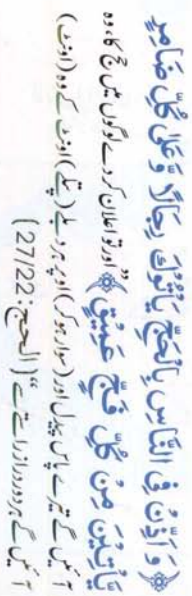 ﴿وَاَذِّنْ فِی النَّاسِ بِالْحَجِّ یَاْتُوْكَ رِجَالًا وَّعَلٰی كُلِّ ضَامِرٍ
یَّاْتِیْنَ مِنْ كُلِّ فَجٍّ عَمِیْقٍ﴾ ”اور تو اعلان کر دے لوگوں میں حج کا، وہ
آئیں گے تیرے پاس پیدل اور (سوار ہو کر) اوپر ہر دبلے (پتلے) اونٹ کے وہ (اونٹ)
آئیں گے ہر دور دراز راستے سے“ (الحج: 27/22)